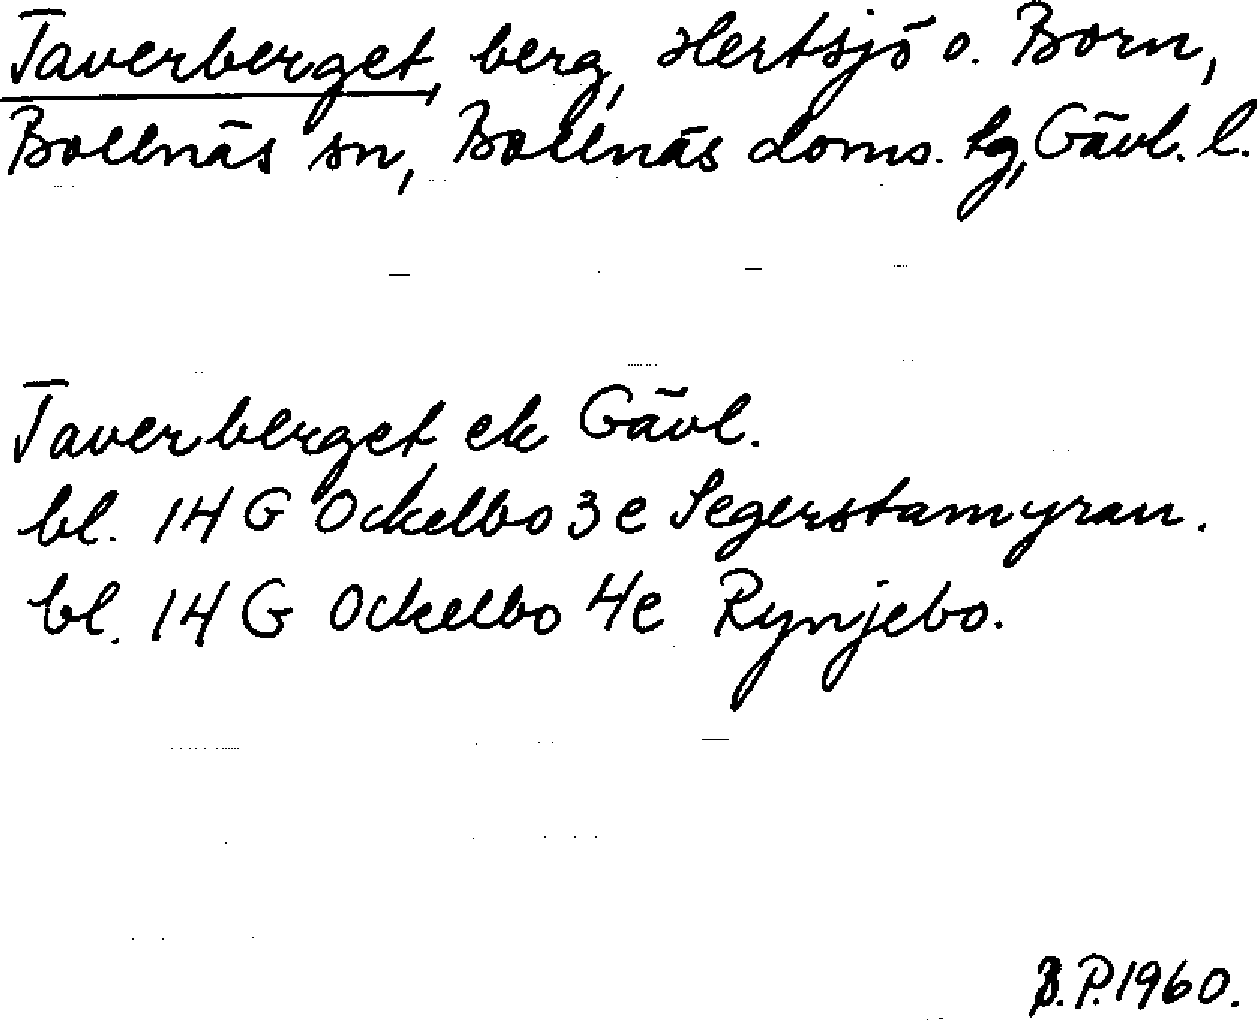 Taverberget, berg, Hertsjö o. Born,
Bollnäs sn, Bollnäs doms. tg, Gävl. l.
Taverberget ek Gävl.
bl. 14 G Ockelbo 3 e Segerstamyran.
bl. 14 G Ockelbo 4e Rynjebo.
B.P.1960.